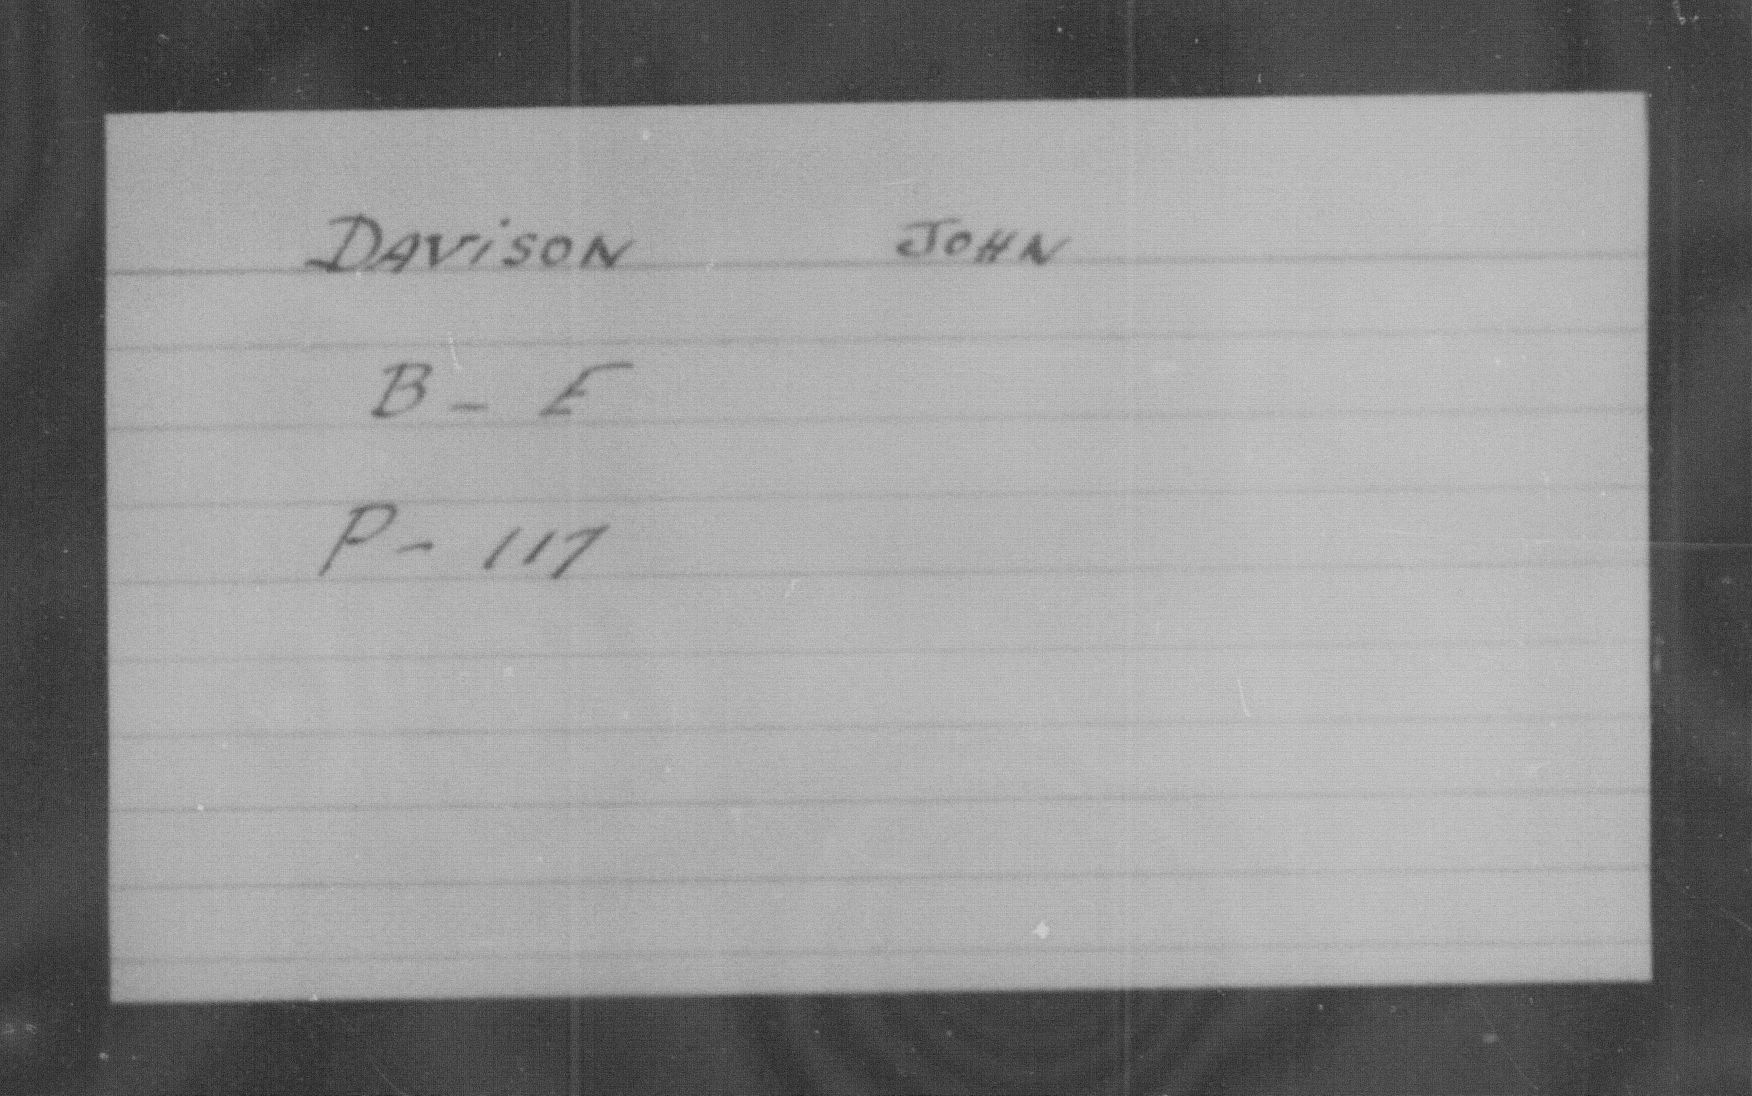 DAViSON JOHN
B - E
P - 117